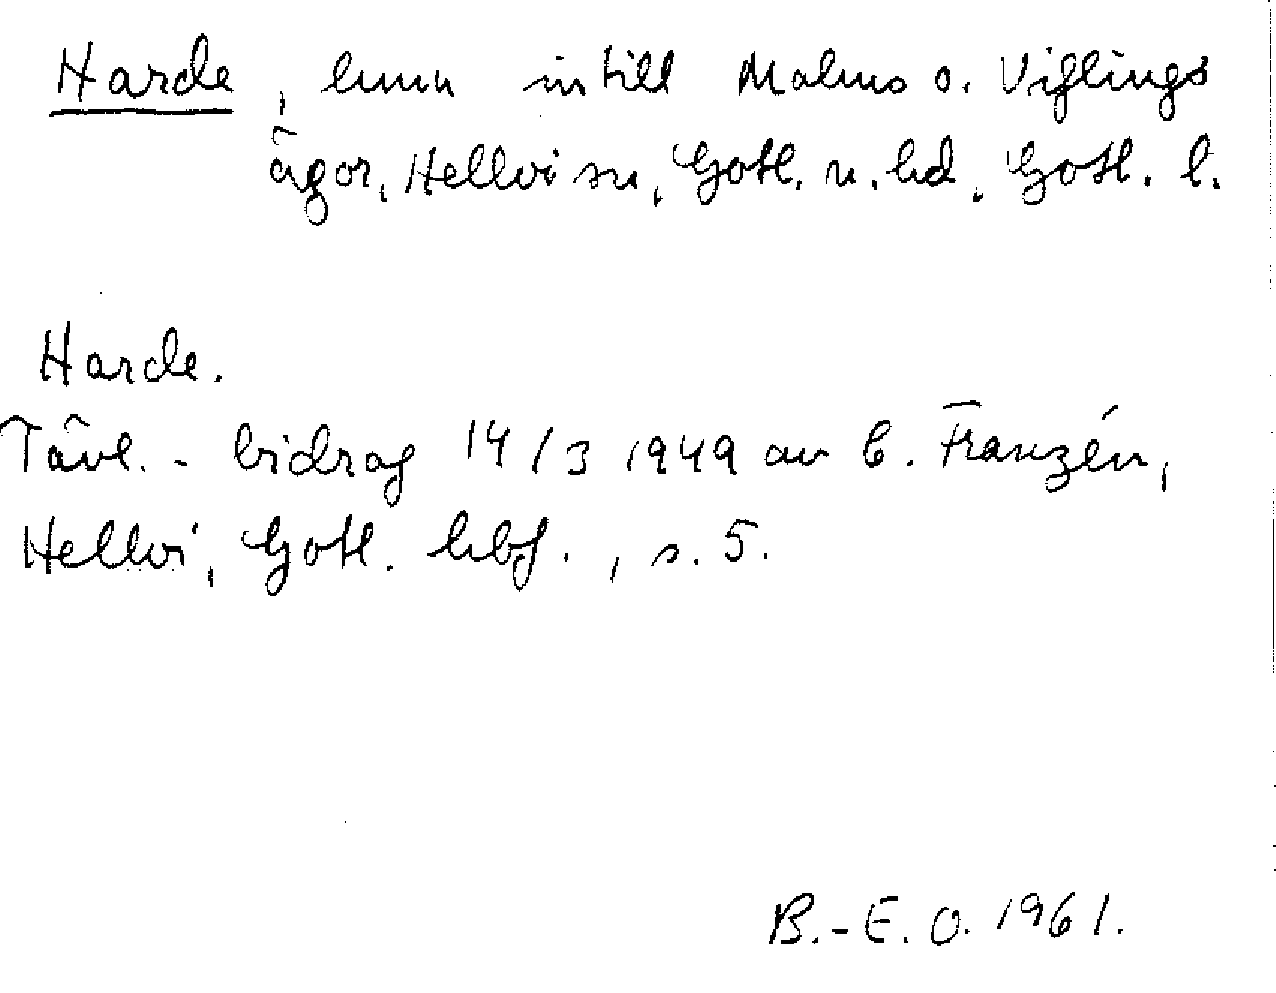 Harde, hmn intill Malms o. Viflings
ägor, Hellvi sn, Gotl. n. hd, Gotl. l.
Harde.
Tävl.-bidrag 14/3 1949 av C. Franzén,
Hellvi, Gotl. hbf., s. 5.
B.-E. O. 1961.